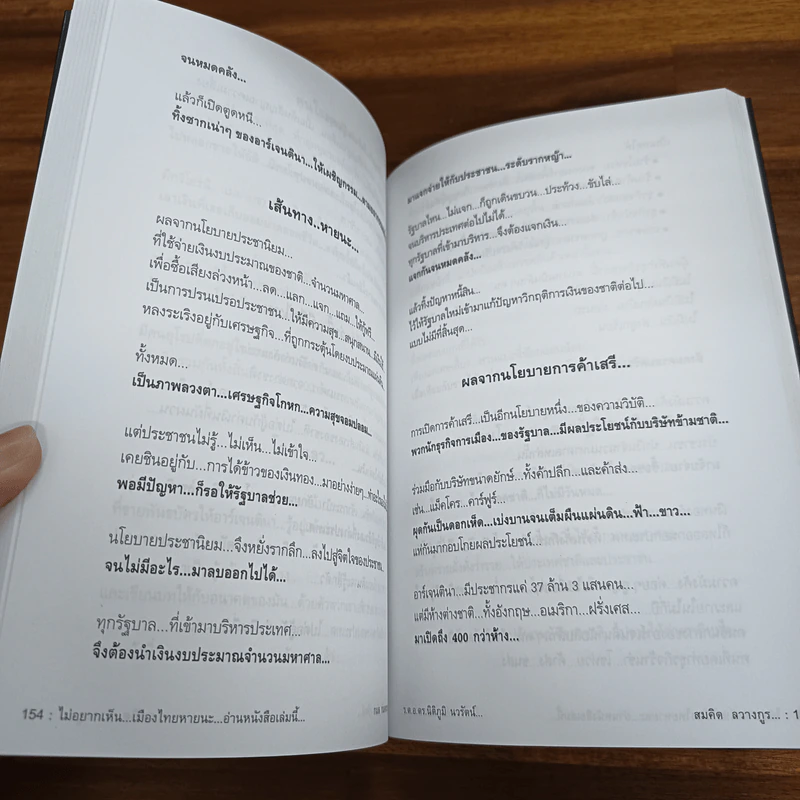 จนหมดคลัง...
แล้วก็เปิดตูดหนี...
ทิ้งซากเน่าๆ ของอาร์เจนตินา...ให้เผชิญกรรม...
เส้นทาง..หายนะ...
ผลจากนโยบายประชานิยม...
ที่ใช้จ่ายเงินงบประมาณของชาติ...จำนวนมหาศาล...
เพื่อซื้อเสียงล่วงหน้า...ลด...แลก...แจก...แถม...ให้ฟรี...
เป็นการปรนเปรอประชาชน...ให้มีความสุข...สนุกสนาน...
หลงระเริงอยู่กับเศรษฐกิจ...ที่ถูกกระตุ้นโดยงบประมาณแผ่นดิน...
ทั้งหมด...
เป็นภาพลวงตา...เศรษฐกิจโกหก...ความสุขจอมปลอม...
แต่ประชาชนไม่รู้...ไม่เห็น...ไม่เข้าใจ...
เคยชินอยู่กับ...การได้ข้าวของเงินทอง...มาอย่างง่ายๆ...
พอมีปัญหา...ก็รอให้รัฐบาลช่วย...
นโยบายประชานิยม...จึงหยั่งรากลึก...ลงไปสู่จิตใจของประชาชน...
จนไม่มีอะไร...มาลบออกไปได้...
ทุกรัฐบาล...ที่เข้ามาบริหารประเทศ...
จึงต้องนำเงินงบประมาณจำนวนมหาศาล...
154 : ไม่อยากเห็น...เมืองไทยหายนะ...อ่านหนังสือเล่มนี้...
มาแจกจ่ายให้กับประชาชน...ระดับรากหญ้า...
รัฐบาลไหน...ไม่แจก...ก็ถูกเดินขบวน...ประท้วง...ขับไล่...
จนบริหารประเทศต่อไปไม่ได้...
ทุกรัฐบาลที่เข้ามาบริหาร...จึงต้องแจกเงิน...
แจกกันจนหมดคลัง...
แล้วทิ้งปัญหาหนี้สิน...
ไว้ให้รัฐบาลใหม่เข้ามาแก้ปัญหาวิกฤติการเงินของชาติต่อไป...
แบบไม่มีที่สิ้นสุด...
ผลจากนโยบายการค้าเสรี...
การเปิดการค้าเสรี...เป็นอีกนโยบายหนึ่ง...ของความวิบัติ...
พวกนักธุรกิจการเมือง...ของรัฐบาล...มีผลประโยชน์กับบริษัทข้ามชาติ...
ร่วมมือกับบริษัทขนาดยักษ์...ทั้งค้าปลีก...และค้าส่ง...
เช่น...แม็คโคร...คาร์ฟูร์...
ผุดกันเป็นดอกเห็ด...เบ่งบานจนเต็มผืนแผ่นดิน...ฟ้า...ขาว...
แห่กันมากอบโกยผลประโยชน์...
อาร์เจนตินา...มีประชากรแค่ 37 ล้าน 3 แสนคน...
แต่มีห้างต่างชาติ...ทั้งอังกฤษ...อเมริกา...ฝรั่งเศส...
มาเปิดถึง 400 กว่าห้าง...
ร.ต.อ.ดร.นิติภูมิ นวรัตน์...
สมคิด ลวางกูร... : 1